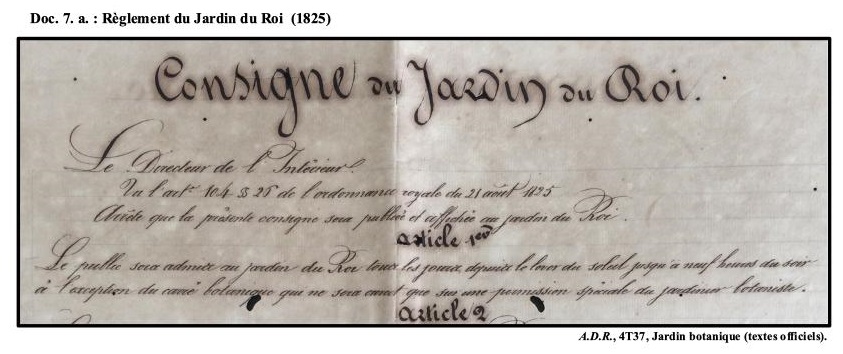 Doc. 7. a. : Règlement du Jardin du Roi (1825)
Consigne du Jardin du Roi.
Le Directeur de l'Intérieur.
Vu l'art 104 § 26 de l'ordonnance royale du 21 août 1825
Arrête que la présente consigne sera publiée et affichée au jardin du Roi.
Article 1er
Le public sera admis au jardin du Roi tous les jours, depuis le lever du soleil jusqu'a neuf heures du soir
à l'exception du carré botanique qui ne sera ouvert que sur une permission spéciale du jardinier botaniste.
Article 2
A.D.R., 4T37, Jardin botanique (textes officiels).